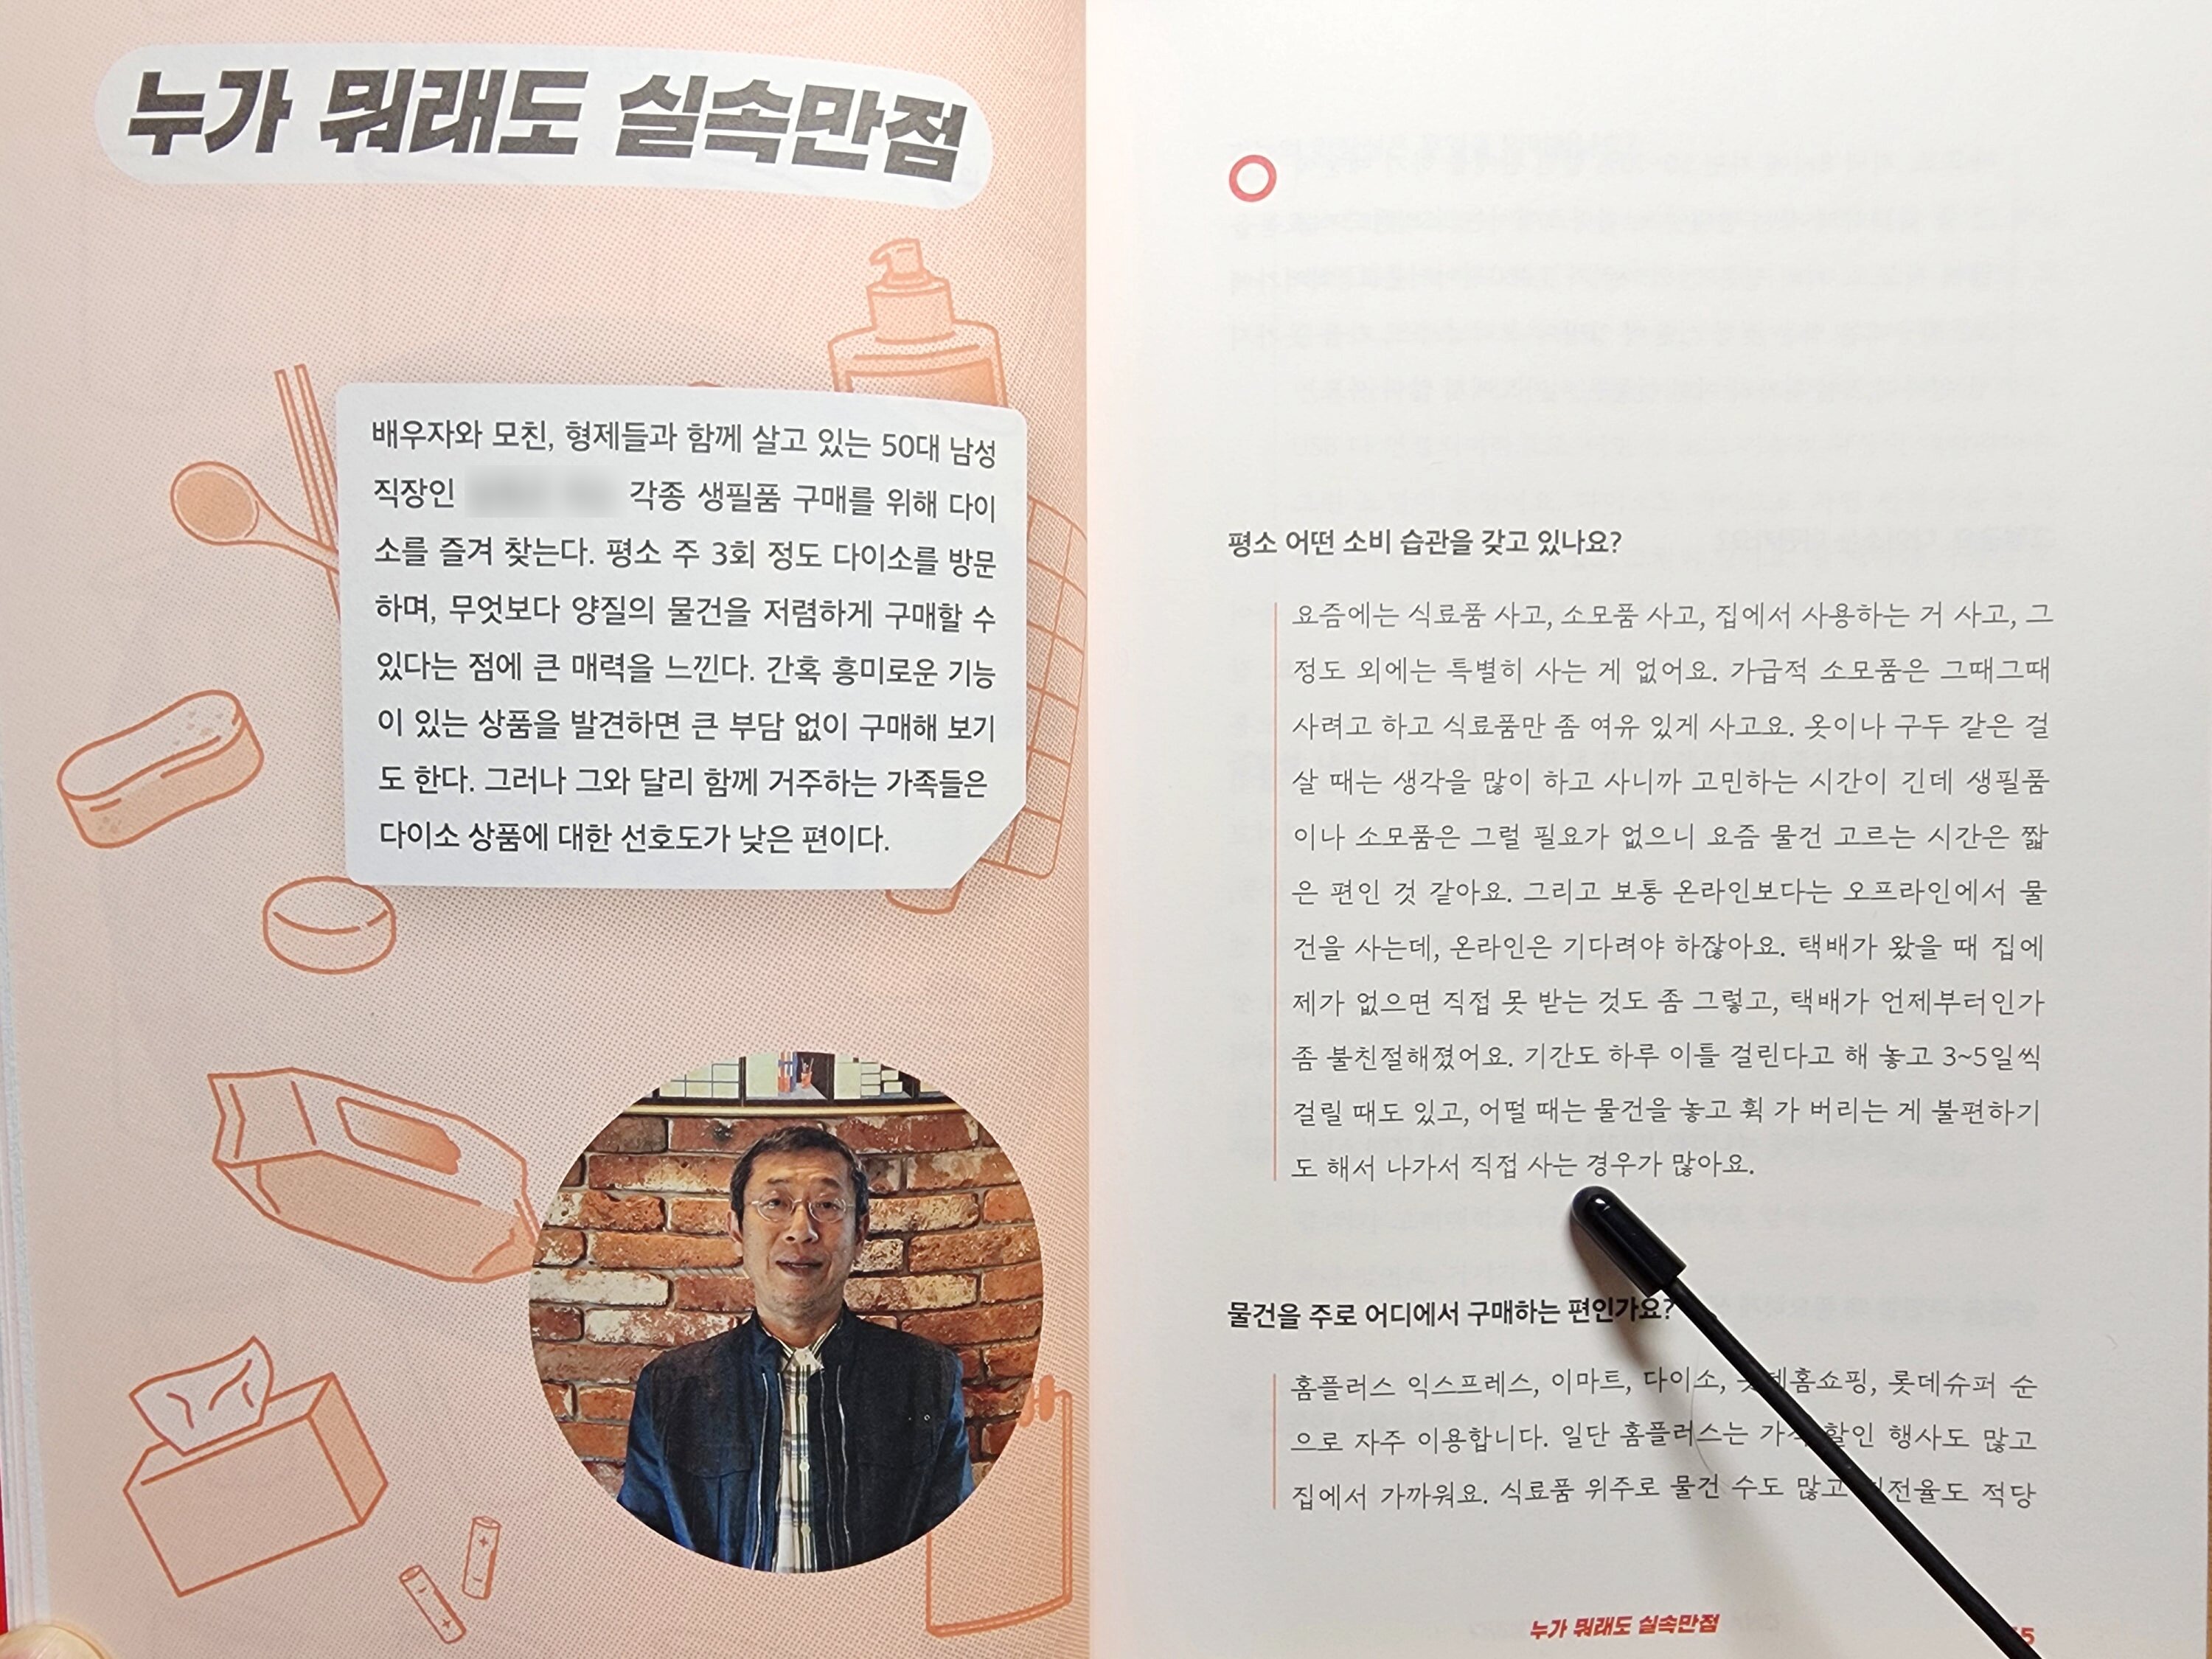 누가 뭐래도 실속만점
배우자와 모친, 형제들과 함께 살고 있는 50대 남성
직장인 각종 생필품 구매를 위해 다이
소를 즐겨 찾는다. 평소 주 3회 정도 다이소를 방문
하며, 무엇보다 양질의 물건을 저렴하게 구매할 수
있다는 점에 큰 매력을 느낀다. 간혹 흥미로운 기능
이 있는 상품을 발견하면 큰 부담 없이 구매해 보기
도 한다. 그러나 그와 달리 함께 거주하는 가족들은
다이소 상품에 대한 선호도가 낮은 편이다.
평소 어떤 소비 습관을 갖고 있나요?
요즘에는 식료품 사고, 소모품 사고, 집에서 사용하는 거 사고, 그
정도 외에는 특별히 사는 게 없어요. 가급적 소모품은 그때그때
사려고 하고 식료품만 좀 여유 있게 사고요. 옷이나 구두 같은 걸
살 때는 생각을 많이 하고 사니까 고민하는 시간이 긴데 생필품
이나 소모품은 그럴 필요가 없으니 요즘 물건 고르는 시간은 짧
은 편인 것 같아요. 그리고 보통 온라인보다는 오프라인에서 물
건을 사는데, 온라인은 기다려야 하잖아요. 택배가 왔을 때 집에
제가 없으면 직접 못 받는 것도 좀 그렇고, 택배가 언제부터인가
좀 불친절해졌어요. 기간도 하루 이틀 걸린다고 해 놓고 3~5일씩
걸릴 때도 있고, 어떨 때는 물건을 놓고 휙 가 버리는 게 불편하기
도 해서 나가서 직접 사는 경우가 많아요.
물건을 주로 어디에서 구매하는 편인가요?
홈플러스 익스프레스, 이마트, 다이소, 롯데홈쇼핑, 롯데슈퍼 순
으로 자주 이용합니다. 일단 홈플러스는 가격 할인 행사도 많고
집에서 가까워요. 식료품 위주로 물건 수도 많고 적당
누가 뭐래도 실속만점